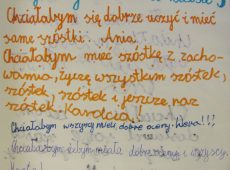 Chciałabym się dobrze uczyć i mieć
same szóstki. Ania
Chciałabym mieć szóstkę z zacho-
wania, życzę wszystkim szóstek,
szóstek, szóstek i jeszcze raz
szóstek. Karolcia
Chciałabym wszyscy mieli dobre oceny Wera!!!
Chciałabym żebym miała dobre oceny i wszyscy